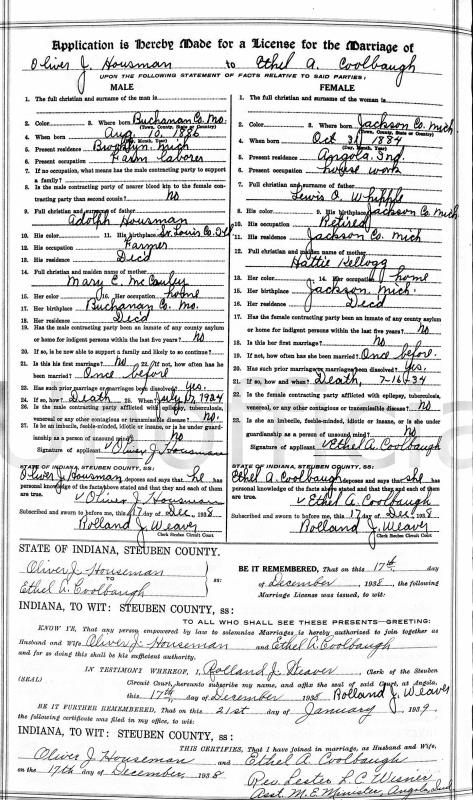 Application is Hereby Made for a License for the Marriage of
Oliver J. Housman to Ethel A. Coolbaugh
UPON THE FOLLOWING STATEMENT OF FACTS RELATIVE TO SAID PARTIES:
MALE
1. The full christian and surname of the man is
2. Color 3. Where born Buchanan Co. Mo.
(Town, County, State or Country)
4. When born Aug. 10, 1886
(Day, Month, Year)
5. Present residence Brooklyn, Mich
6. Present occupation Farm laborer
7. If no occupation, what means has the male contracting party to support
a family?
8. Is the male contracting party of nearer blood kin to the female con-
tracting party than second cousin? No
9. Full christian and surname of father
Adolph Housman
10. His color 11. His birthplace St. Louis Co.
12. His occupation Farmer
13. His residence Decd
14. Full christian and maiden name of mother
Mary E. McCauley
15. Her color 16. Her occupation home
17. Her birthplace Buchanan Co. Mo.
18. Her residence Decd
19. Has the male contracting party been an inmate of any county asylum
or home for indigent persons within the last five years? No
20. If so, is he now able to support a family and likely to so continue?
21. Is this his first marriage? No 22. If not, how often has he
been married? Once before
23. Has such prior marriage or marriages been dissolved? Yes.
24. If so, how? Death 25. When? July 17, 1924
26. Is the male contracting party afflicted with epilepsy, tuberculosis,
venereal, or any other contagious or transmissible disease? No.
27. Is he an imbecile, feeble-minded, idiotic or insane, or is he under guard-
ianship as a person of unsound mind? No
Signature of applicant v Oliver J. Housman
STATE OF INDIANA, STEUBEN COUNTY, SS:
Oliver J. Housman deposes and says that he has
personal knowledge of the facts above stated and that they and each of them
are true.
v Oliver J. Housman
Subscribed and sworn to before me, this 17 day of Dec. 1938
Rolland J. Weaver
Clerk Steuben Circuit Court
FEMALE
1. The full christian and surname of the woman is
2. Color 3. Where born Jackson Co. Mich
(Town, County, State or Country)
4. When born Oct 31, 1884
(Day, Month, Year)
5. Present residence Angola, Ind.
6. Present occupation house work
7. Full christian and surname of father
Lewis O. Whipple
8. His color 9. His birthplace Jackson Co. Mich.
10. His occupation Retired
11. His residence Jackson Co. Mich
12. Full christian and maiden name of mother
Hattie Kellogg
13. Her color 14. Her occupation home
15. Her birthplace Jackson, Mich.
16. Her residence Decd
17. Has the female contracting party been an inmate of any county asylum
or home for indigent persons within the last five years? No
18. Is this her first marriage? No
19. If not, how often has she been married? Once before.
20. Has such prior marriage or marriages been dissolved? Yes.
21. If so, how and when? Death, 7-16-34
22. Is the female contracting party afflicted with epilepsy, tuberculosis,
venereal, or any other contagious or transmissible disease? No
23. Is she an imbecile, feeble-minded, idiotic or insane, or is she under
guardianship as a person of unsound mind? No
Signature of applicant v Ethel A. Coolbaugh
STATE OF INDIANA, STEUBEN COUNTY, SS:
Ethel A. Coolbaugh deposes and says that she has
personal knowledge of the facts above stated and that they and each of them
are true.
v Ethel A. Coolbaugh
Subscribed and sworn to before me, this 17 day of Dec. 1938
Rolland J. Weaver
Clerk Steuben Circuit Court
STATE OF INDIANA, STEUBEN COUNTY.
Oliver J. Houseman
TO
Ethel A. Coolbaugh
ss:
BE IT REMEMBERED, That on this 17th day
of December 1938, the following
Marriage License was issued, to wit:
INDIANA, TO WIT: STEUBEN COUNTY, ss:
TO ALL WHO SHALL SEE THESE PRESENTS—GREETING:
KNOW YE, That any person empowered by law to solemnize Marriages is hereby authorized to join together as
Husband and Wife, Oliver J. Houseman and Ethel A. Coolbaugh
and for so doing this shall be his sufficient authority.
IN TESTIMONY WHEREOF, I, Rolland J. Weaver, Clerk of the Steuben
(SEAL) Circuit Court, hereunto subscribe my name, and affix the seal of said Court, at Angola,
this 17th day of December 1938 Rolland J. Weaver
BE IT FURTHER REMEMBERED, That on this 21st day of January 1939
the following certificate was filed in my office, to wit:
INDIANA, TO WIT: STEUBEN COUNTY, ss:
THIS CERTIFIES, That I have joined in marriage, as Husband and Wife,
Oliver J. Houseman and Ethel A. Coolbaugh
on the 17th day of December 1938
Rev. Lester L. C. Wisner
Asst. M. E. Minister, Angola, Ind